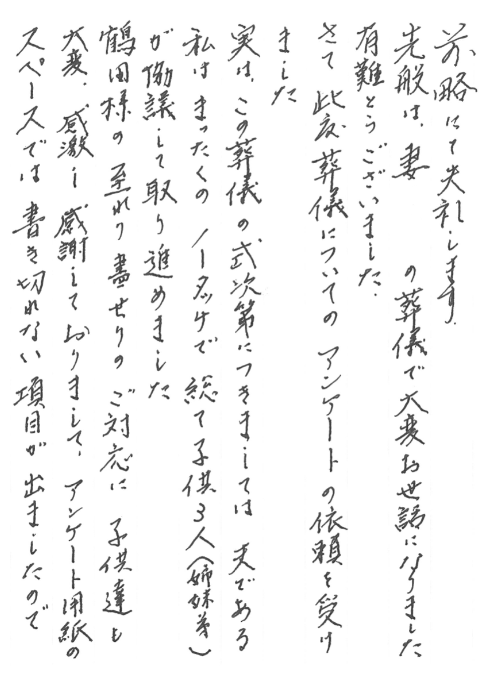 前略にて失礼します.
先般は、妻 の葬儀で大変お世話になりました
有難とうございました.
さて 此度 葬儀についての アンケートの依頼を受け
ました
実は、この葬儀の式次第につきましては 夫である
私は まったくの ノータッチで 総て子供3人(姉妹弟)
が協議して取り進めました
鶴田様の至れり盡せりの ご対応に 子供達も
大変、感激し感謝しておりまして、アンケート用紙の
スペースでは 書き切れない項目が 出ましたので